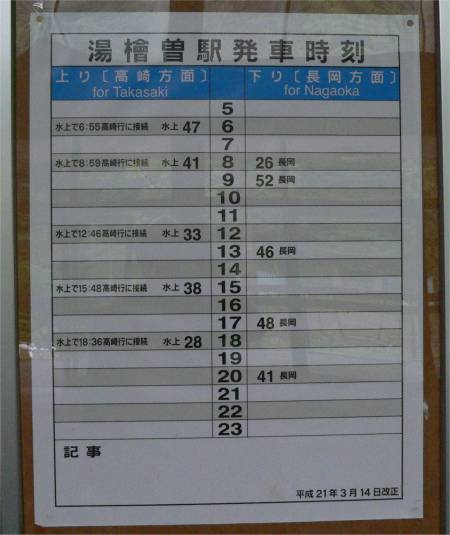 湯檜曽駅発車時刻
上り〔高崎方面〕 下り〔長岡方面〕
for Takasaki for Nagaoka
5
水上で6:55高崎行に接続 水上 47 6
7
水上で8:59高崎行に接続 水上 41 8 26 長岡
9 52 長岡
10
11
水上で12:46高崎行に接続 水上 33 12
13 46 長岡
14
水上で15:48高崎行に接続 水上 38 15
16
17 48 長岡
水上で18:36高崎行に接続 水上 28 18
19
20 41 長岡
21
22
23
記事
平成21年3月14日改正